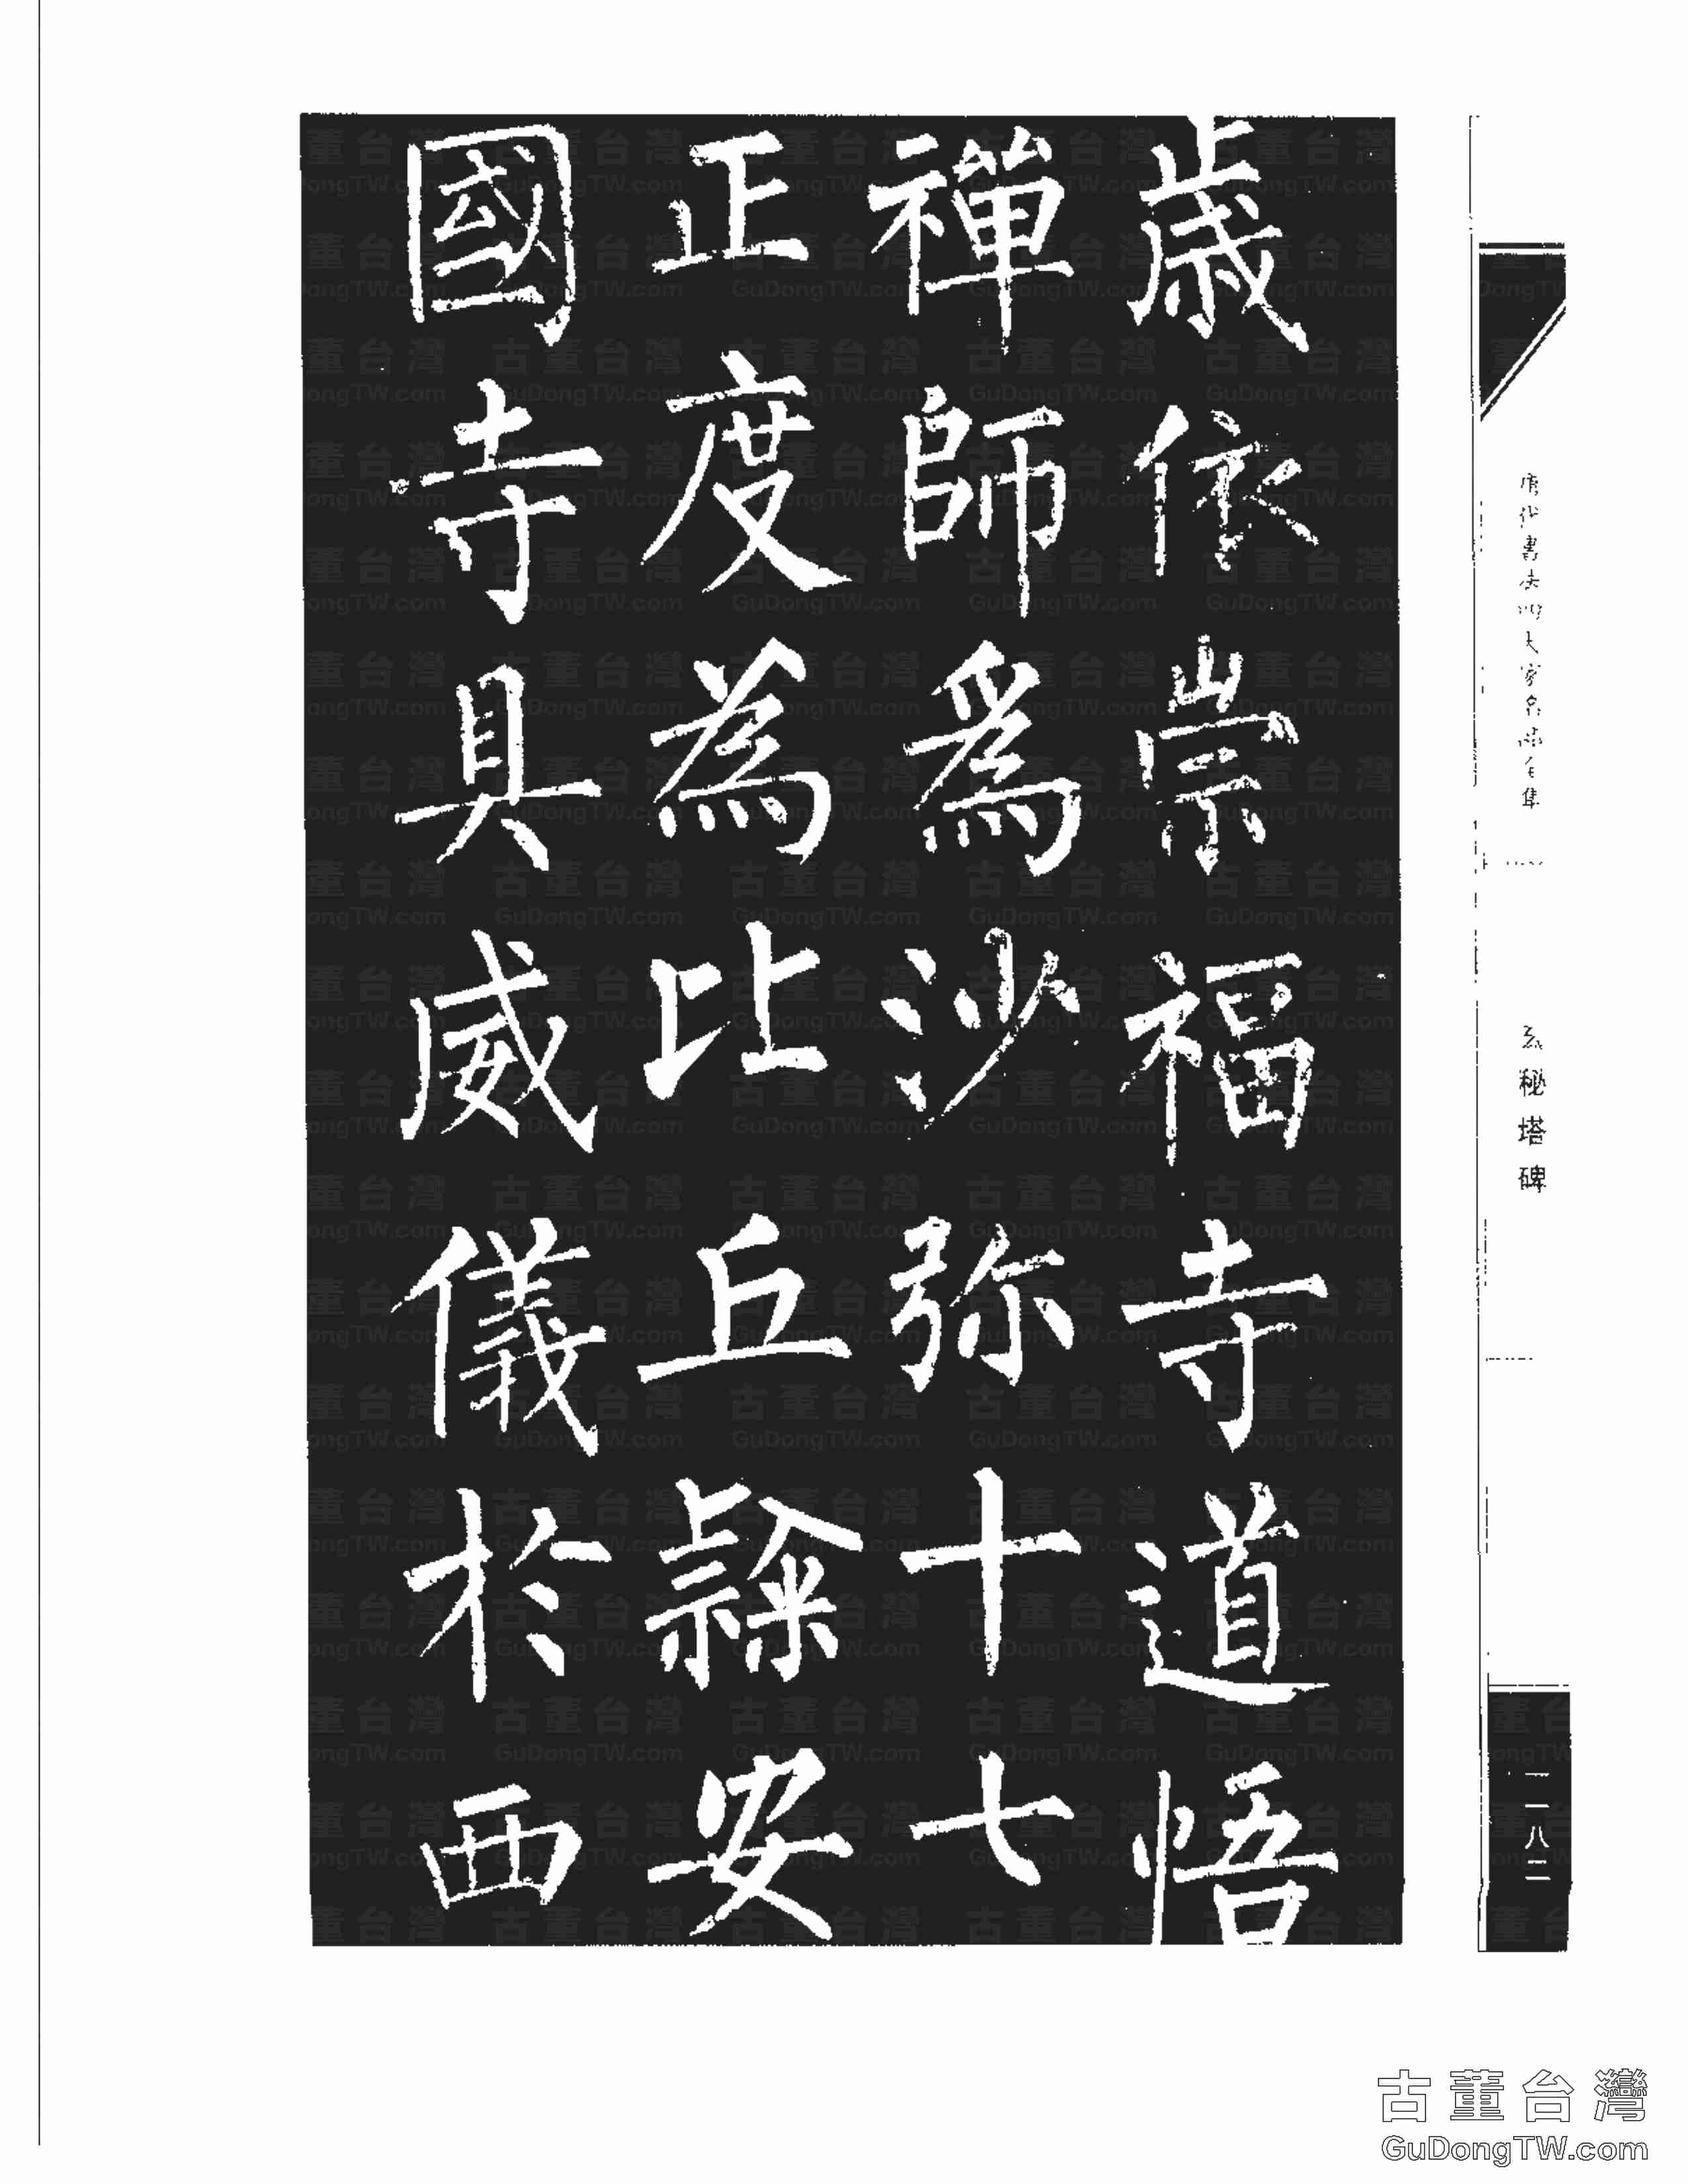 歲依崇福寺道悟
禪師爲沙弥十七
正度為比丘隸安
國寺具威儀於西
唐代書法四大家名碑全集
玄秘塔碑
一一八二
古董台灣
GuDongTW.com